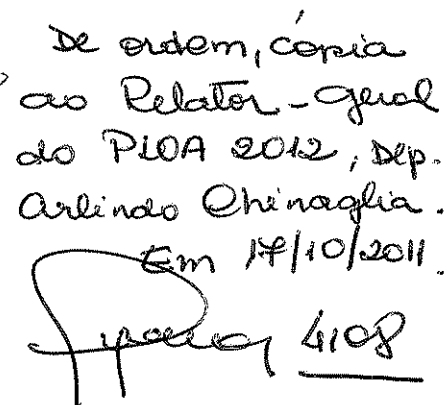 De ordem, cópia
ao Relator-Geral
do PLOA 2012, Dep.
Arlindo Chinaglia.
Em 17/10/2011.
4108